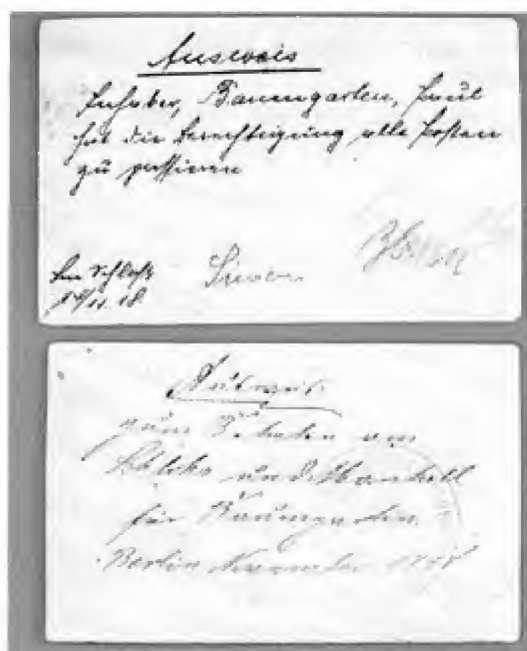 Ausweis
Inhaber, Baumgarten, Paul
hat die Berechtigung alle Posten
zu passieren
Im Schloß
11.18
Ausweis
zum Betreten von
Schloss und Marstall
für Baumgarten
Berlin November 1918